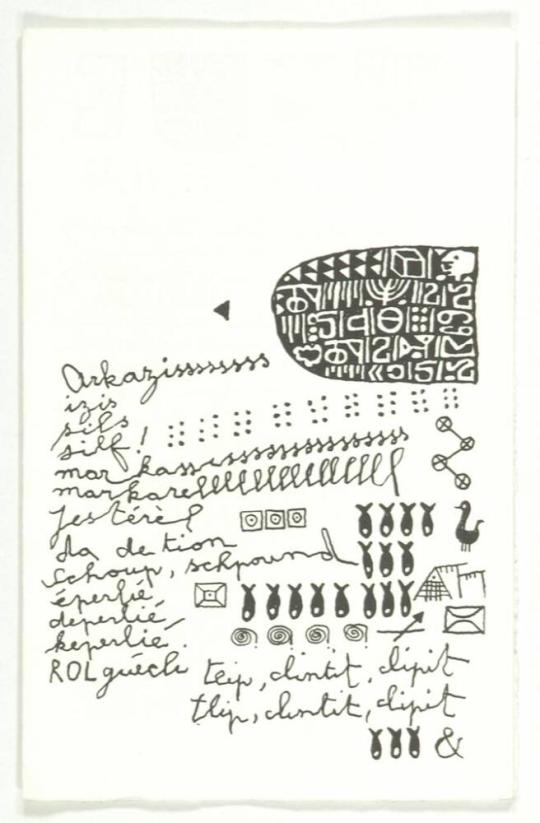 Arkazisssssssss
izis
sils
silf !
mar kassissssssssssssssss
markarelllllllllllllllll
jestérèl
da de tion
schoup, schpound
éperlié,
deperlié,
keperlié.
ROLguéch
teip, clintit, clipit
tlip, clintit, clipit
&